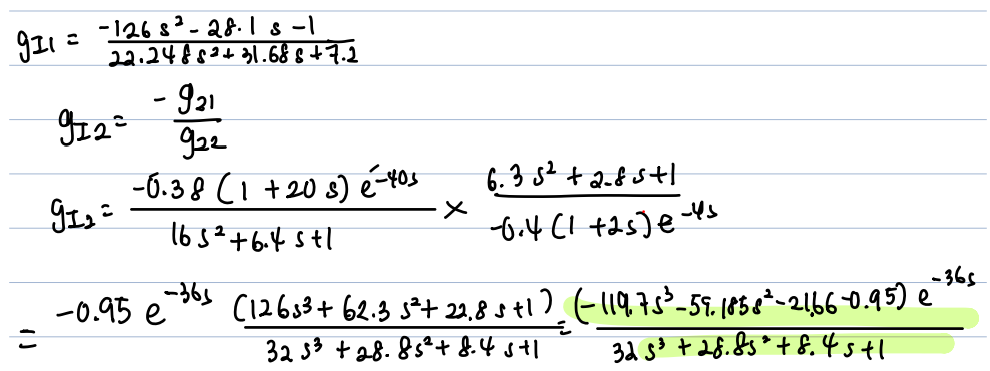 gI1 = (-126 s² - 28.1 s - 1) / (22.248 s² + 31.68 s + 7.2)
gI2 = -g21 / g22
gI2 = (-0.38 (1 + 20 s) e^-40s) / (16 s² + 6.4 s + 1) × (6.3 s² + 2.8 s + 1) / (-0.4 (1 + 2s) e^-4s)
= -0.95 e^-36s (126 s³ + 62.3 s² + 22.8 s + 1) / (32 s³ + 28.8 s² + 8.4 s + 1) = (-119.7 s³ - 59.185 s² - 21.66 - 0.95) e^-36s / (32 s³ + 28.8 s² + 8.4 s + 1)